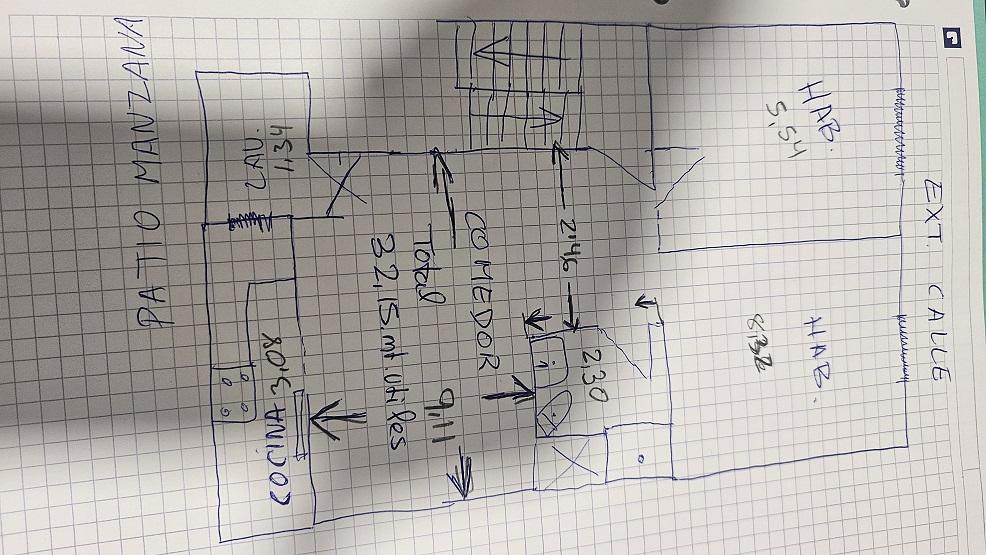 EXT. CALLE
HAB.
5,54
HAB.
8,32
2'46
2,30
COMEDOR
9,11
Total
32,15 mt. Utiles
LAV.
1,34
COCINA 3,08
PATIO MANZANA